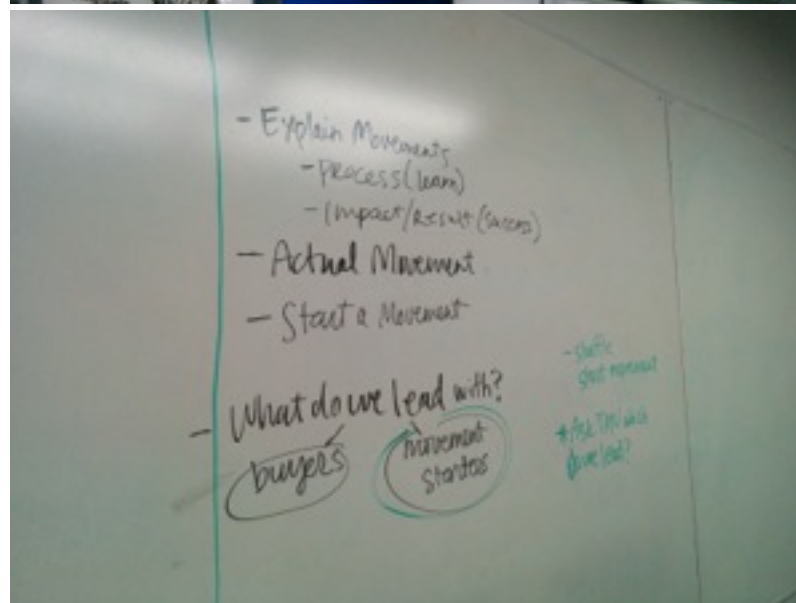 - Explain Movements
- Process (learn)
- Impact/Result (success)
- Actual Movement
- Start a Movement
- What do we lead with?
buyers
movement
starters
movement
* Ask
do we lead?